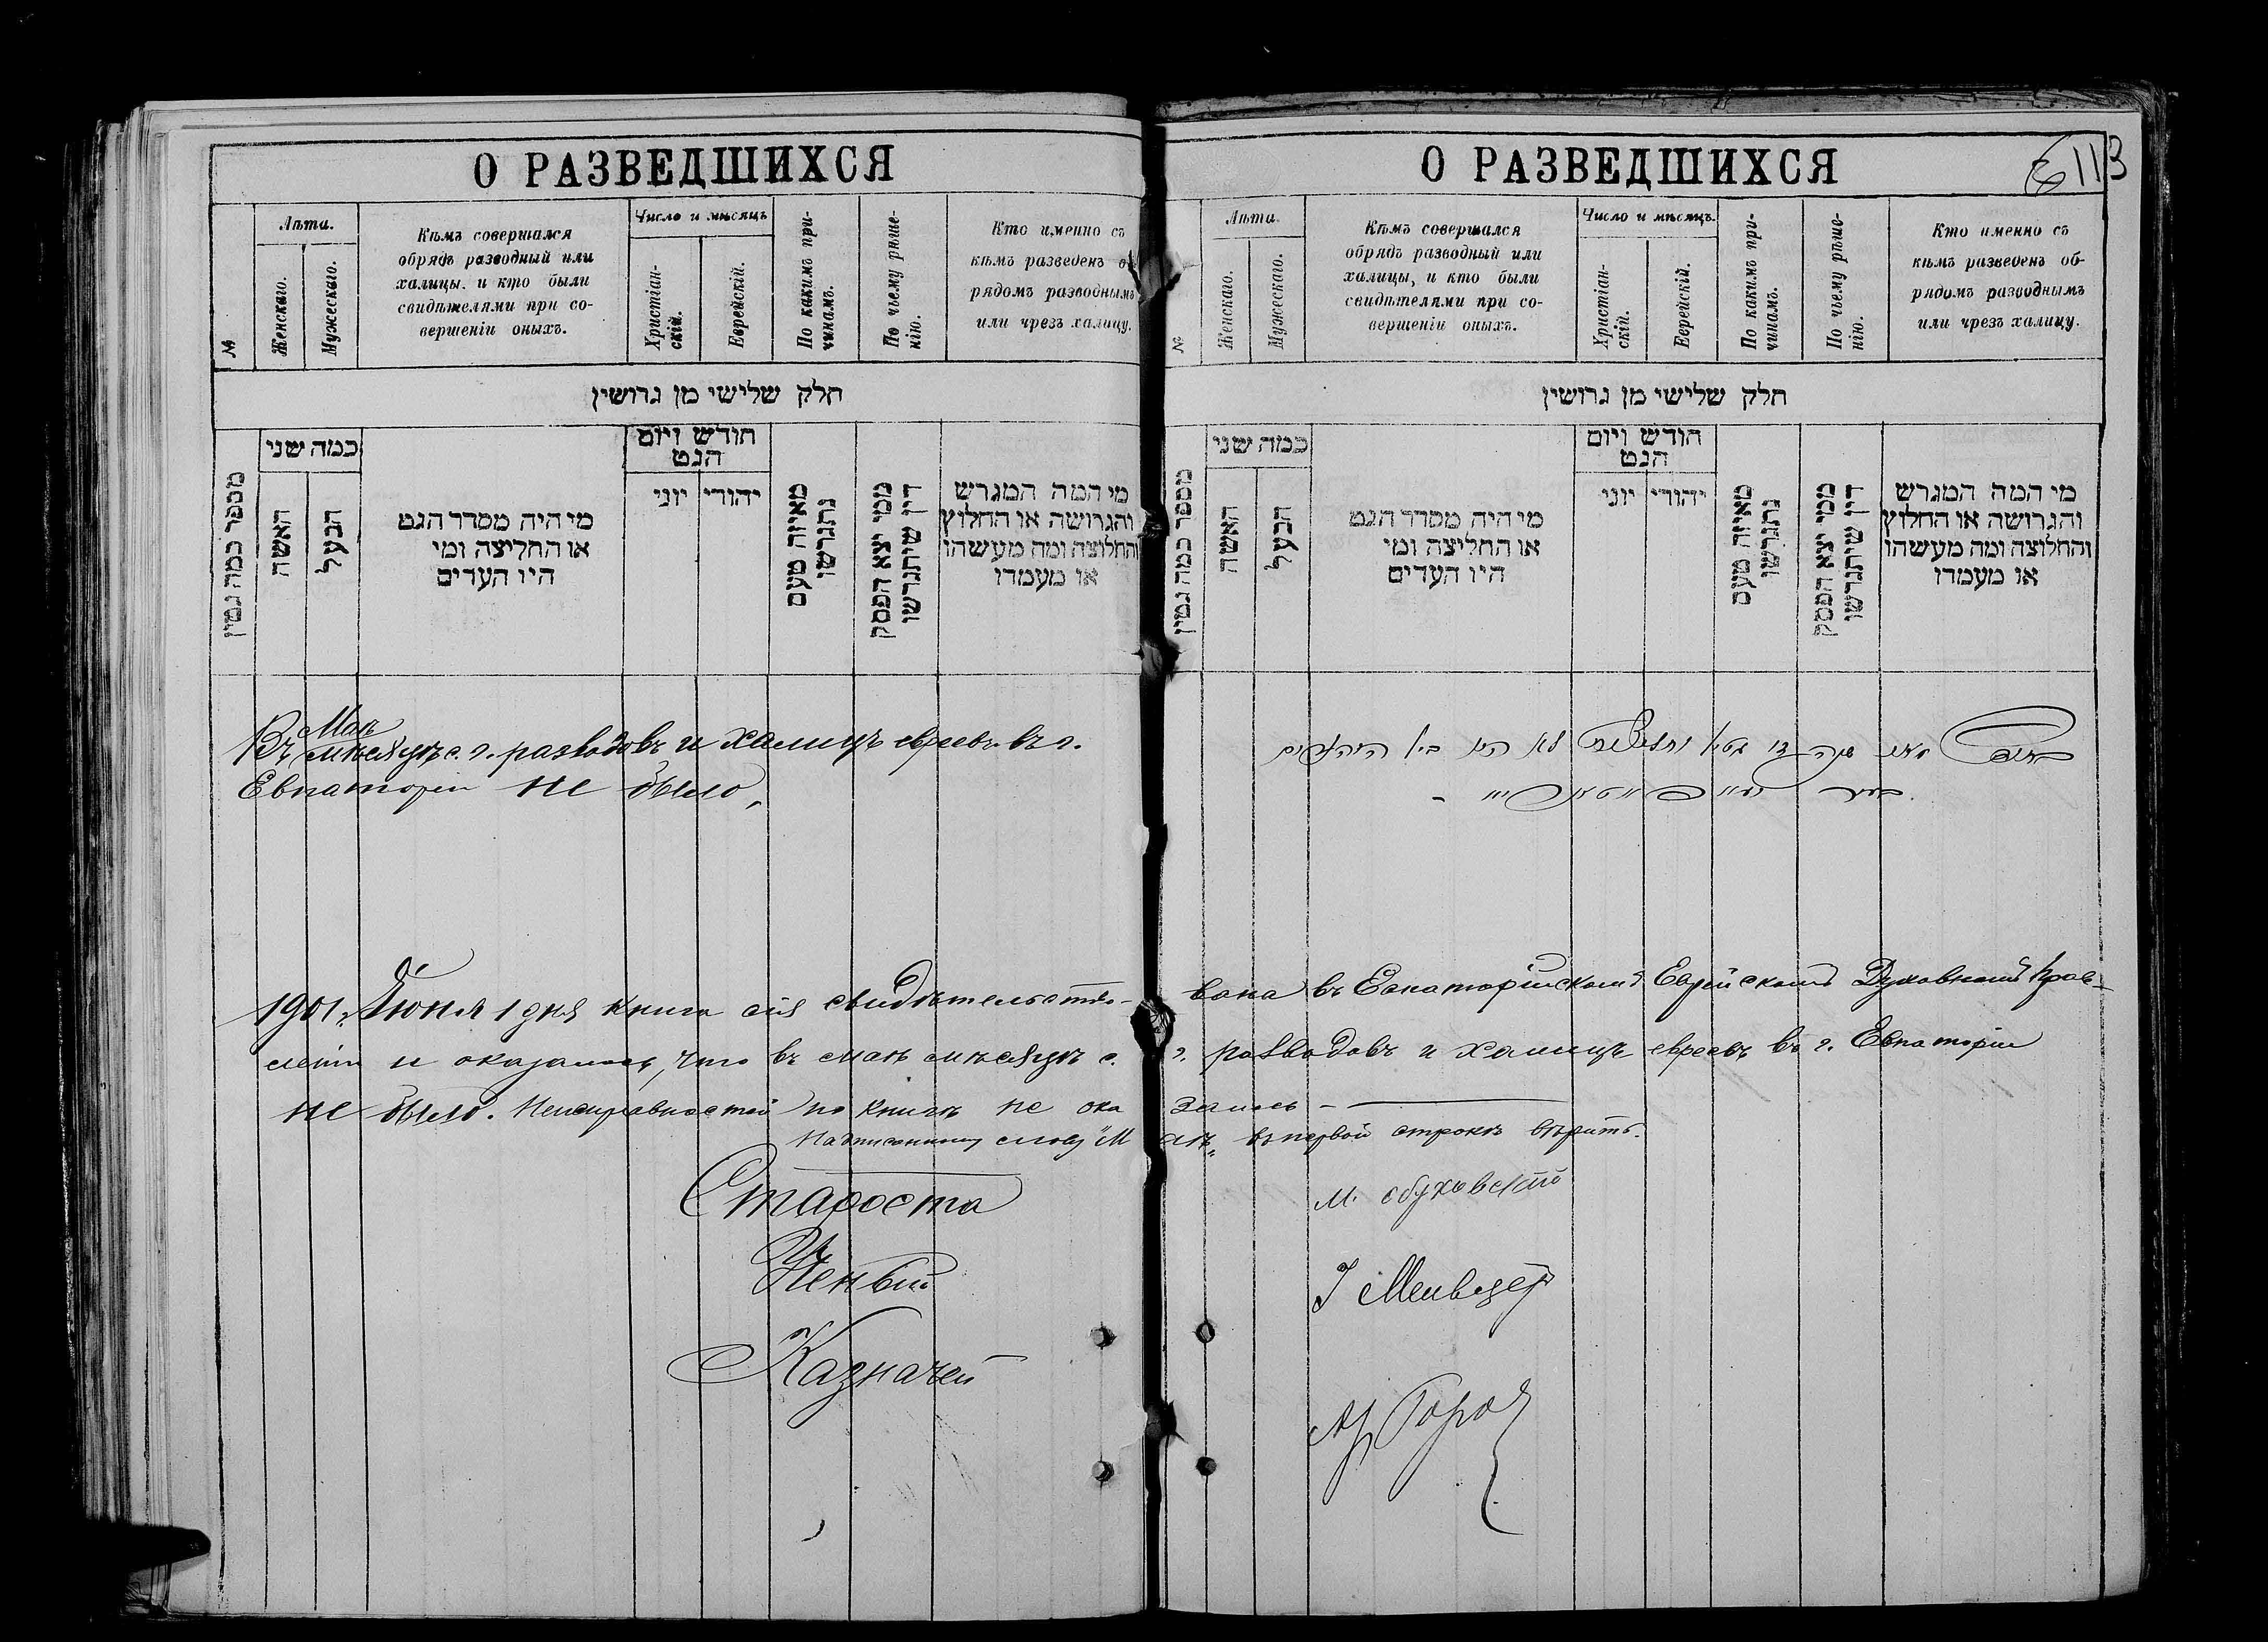 О РАЗВЕДШИХСЯ
№
Лѣта.
Женскаго.
Мужескаго.
Кѣмъ совершался
обрядъ разводный или
халицы. и кто были
свидѣтелями при со-
вершеніи оныхъ.
Число и мѣсяцъ
Христіан-
скій.
Еврейскій.
По какимъ при-
чинамъ.
По чьему рѣше-
нію.
Кто именно съ
кѣмъ разведенъ об
рядомъ разводнымъ
или чрезъ халицу.
חלק שלישי מן גרושין
מספר כמה גטין
כמה שני
האשה
הבעל
מי היה מסדר הגט
או החליצה ומי
היו העדים
חודש ויום
הגט
יוני
יהודי
מאיזה טעם
נתגרשו
ממי יצא הפסק
דין שיתגרשו
מי המה המגרש
והגרושה או החלוץ
והחלוצה ומה מעשהו
או מעמדו
Маѣ
Въ мѣсяцѣ с. г. разводовъ и халицъ евреевъ въ г.
Евпаторіи не было,
О РАЗВЕДШИХСЯ
113
№
Лѣта.
Женскаго.
Мужескаго.
Кѣмъ совершался
обрядъ разводный или
халицы, и кто были
свидѣтелями при со-
вершеніи оныхъ.
Число и мѣсяцъ.
Христіан-
скій.
Еврейскій.
По какимъ при-
чинамъ.
По чьему рѣше-
нію.
Кто именно съ
кѣмъ разведенъ об-
рядомъ разводнымъ
или чрезъ халицу.
חלק שלישי מן גרושין
מספר כמה גטין
כמה שני
האשה
הבעל
מי היה מסדר הגט
או החליצה ומי
היו העדים
חודש ויום
הגט
יוני
יהודי
מאיזה טעם
נתגרשו
ממי יצא הפסק
דין שיתגרשו
מי המה המגרש
והגרושה או החלוץ
והחלוצה ומה מעשהו
או מעמדו
לא היו בין היהודים
בעיר
1901 г. Іюня 1 дня книга сія свидѣтельство- вана въ Евпаторійскомъ Еврейскомъ Духовномъ Прав-
леніи и оказалось, что въ маѣ мѣсяцѣ с. г. разводовъ и халицъ евреевъ въ г. Евпаторіи
не было. Неисправностей по книгѣ не ока залось –
Надписанному слову "Маѣ" въ первой строкѣ вѣрить.
Староста М. Обуховскій
Ученый І
Казначей